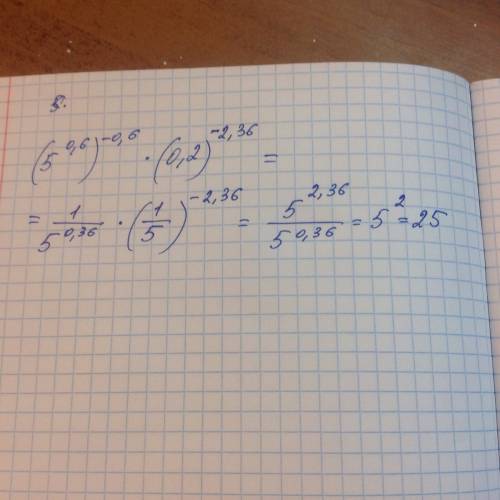 5.
(5^0,6)^-0,6 · (0,2)^-2,36 =
= 1/5^0,36 · (1/5)^-2,36 = 5^2,36/5^0,36 = 5^2 = 25